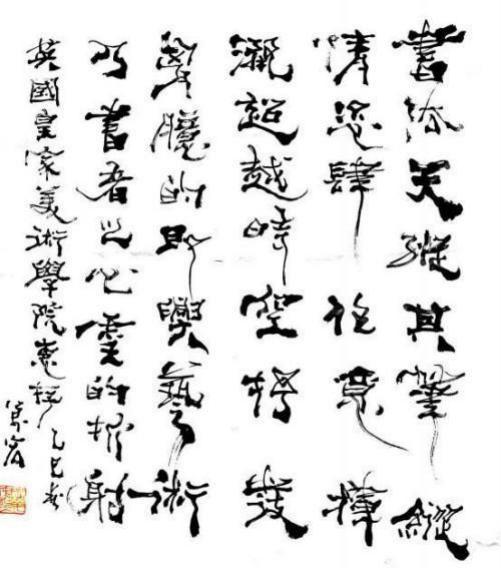 書法天縱其筆縱
情恣肆任意揮
灑超越時空抒發
胷臆的即興藝術
乃書者之心靈的折射
英國皇家美術學院惠存 乙巳春